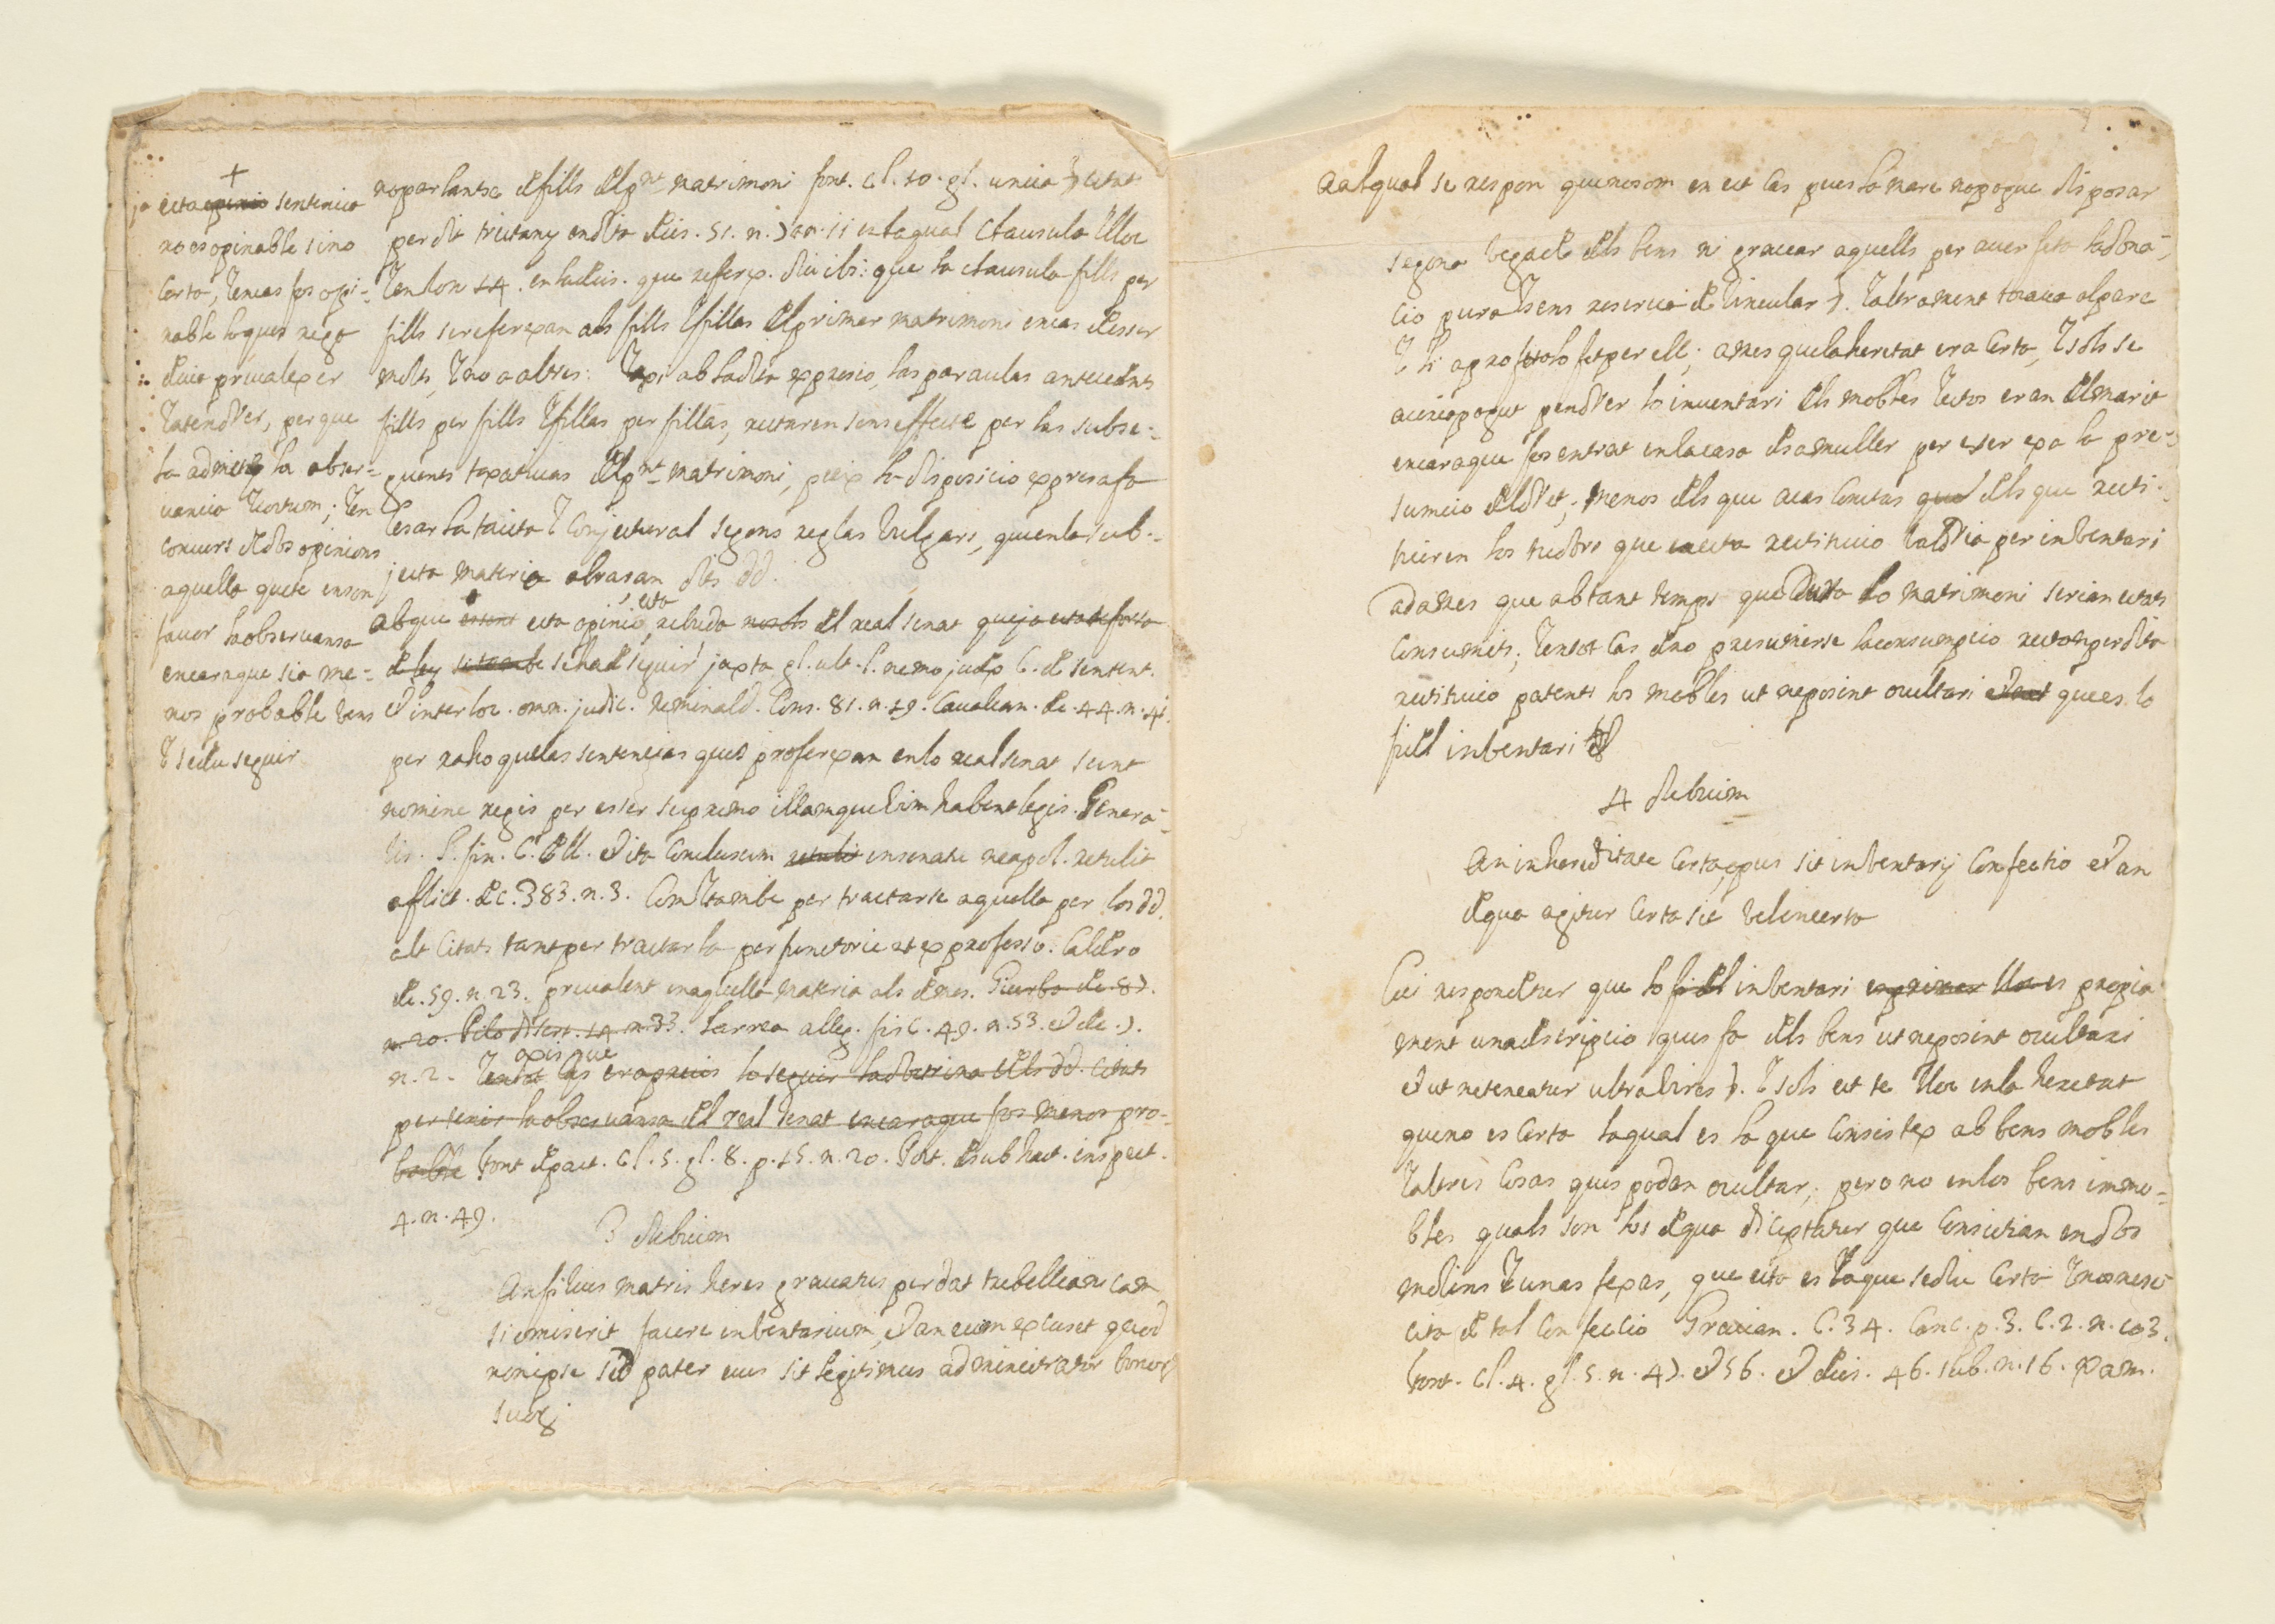 +
ja esta opinio sentencia
no es opinable sino
certa, y encas fos opi-
nable lo ques nega
deuia preualexer
y atendrer, perque
la admete la obser-
uancia ; y en
concurs de dos opinions
aquella que te en son
fauor la obseruansa
encaraque sia me-
nos probable bens
y se deu seguir
no parlantse de fills del pnt matrimoni font. cl. 10. gl. unica
per dit tristany en dita decis. 51. n. en la qual clausula
y en lo n 14. en la decis. que referex. diu ibi: que la clausula fills per
fills se referexan als fills y fillas del primer matrimoni encas de esser
molts, y no a altres: y axi ab la dita expresio, las paraulas antecedents
fills per fills y fillas per fillas, restaren sens effecte per las subse-
quents taxatiuas del pnt matrimoni, puix la disposicio expresa fa
cesar la tacita y conjectural segons reglas vulgars, que en la sub-
jecta materia abrasan dits dd.
esta
abque essent esta opinio, rebuda del real senat que ja esta
de ley se ha de seguir juxta gl. ult. l. nemo judex C. de sentent.
et interloc. omn. judic. Reminald. cons. 81. n. 19. Caualcan. de. 44. n. 41.
per raho que las sentencias ques proferexan en lo real senat sunt
nomine regis per esser supremo illamque vim habent legis. Genera-
lis. l. fin. C. de ll. et ita conclusum retulit in senatu neapol. retulit
afflict. dec. 383. n. 3. Com y tambe per tractarse aquella per los dd.
alt citats tant per tractarla perfunctorie et ex professo. Caldero
de. 59. n. 23. preualent en aquella materia als demes. Giurba de. 87.
n. 20. n. 33. Larrea alleg. fisc. 49. n. 53. et de. 7.
axis que
n. 2. y en tal cas era precis lo seguir la doctrina dels dd. citats
per tenir la obseruansa del real senat encaraque fos menos pro-
bable font de pact. cl. 5. gl. 8. p. 15. n. 20. Post. de subhast. inspect.
4. n. 49.
3 dubium
An filius matris heres grauatus perdat trebellianicam
si omiserit facere inbentarium, et an eum excuset quod
non ipse sed pater eius sit legitimus administrator bonor
suor
Aa lqual se respon que no som en est cas pues la mare no pogue disposar
segona begada dels bens ni grauar aquells per auer feta la dona-
cio pura y sens reserua de vincular y altrament tocaua al pare
y li aprofitaho fet per ell; ames que la heretat era certa, y sols se
pogut pendrer lo inuentari dels mobles y estos eran del marit
encaraque fos entrat en la casa de sa muller per esser exa la pre-
sumcio del dret, menos dels que acas constas dels que resti-
tuiren los tudors que esta restitucio baldria per inbentari
ademes que ab tant temps que dura lo matrimoni serian estats
consumits; y en tot cas de no presumirse la consumpcio restan per dita
restitucio patents los mobles ut no posint ocultari ques lo
fi del inbentari
4 dubium
An in hereditate certa opus sit inbentarij confectio et an
de qua agitur certa sit vel incerta
Cui respondetur que lo fi del inbentari es propia-
ment una descripcio ques fa dels bens ut ne posint ocultari
et ut ne teneatur ultra vires y sols est te lloc en la heretat
que no es certa laqual es la que consistex ab bens mobles
y altres cosas ques podan ocultar; pero no en los bens immo-
bles quals son los de qua disceptatur que consistian en dos
molins y unas fexas, que esta es la que se diu certa y no nese-
cita de tal confeccio Gratian. C. 34. Canc. p. 3. C. 2. n. 103.
font. cl. 4. gl. 5. n. 47. et 56. et decis. 46. sub. n. 16. Ram.